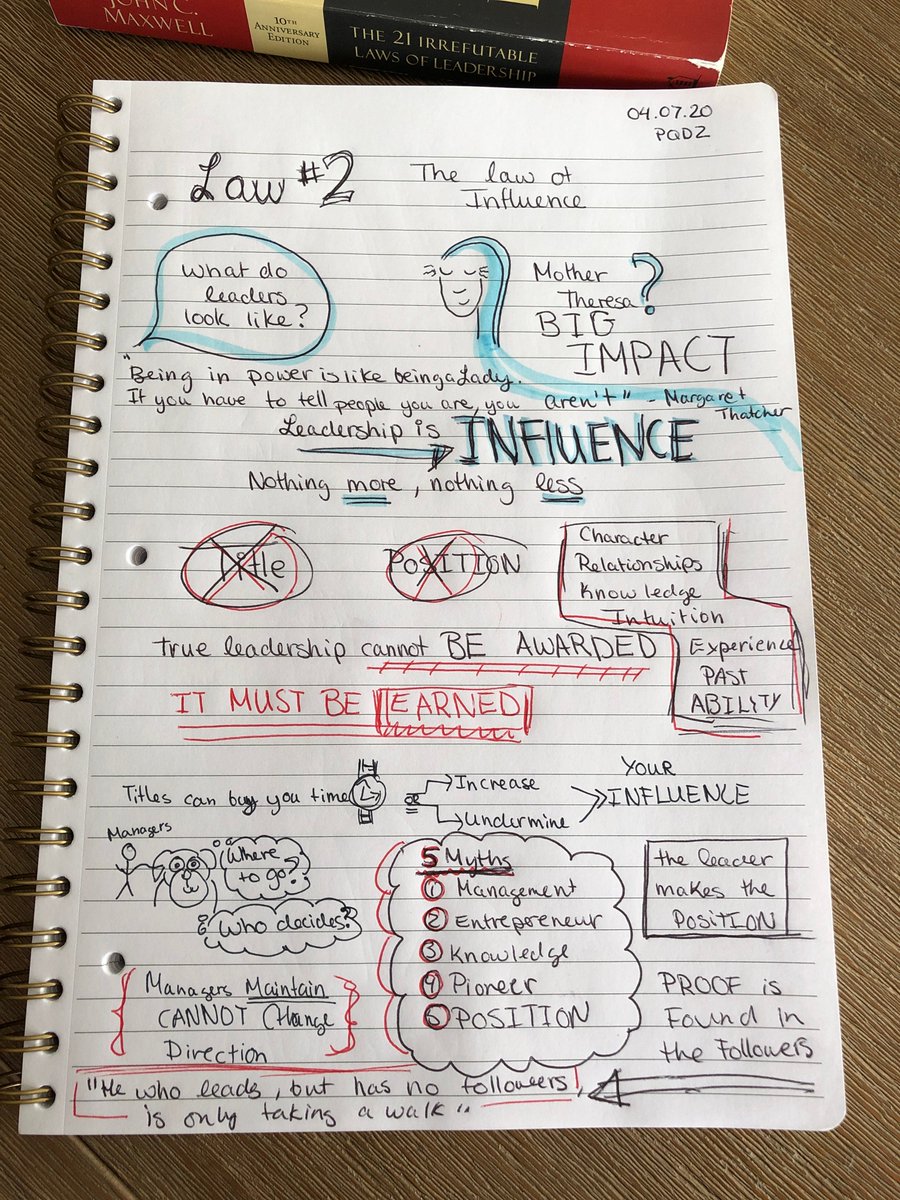 JOHN C.
MAXWELL
10TH
ANNIVERSARY
EDITION
THE 21 IRREFUTABLE
LAWS OF LEADERSHIP
04.07.20
PQDZ
Law #2
The law of
Influence
What do
leaders
look like?
Mother
Theresa?
BIG
IMPACT
"Being in power is like being a Lady.
If you have to tell people you are, you aren't" - Margaret
Thatcher
Leadership is INFLUENCE
Nothing more, nothing less
Title
POSITION
Character
Relationships
Knowledge
Intuition
Experience
PAST
ABILITY
true leadership cannot BE AWARDED
IT MUST BE EARNED
Titles can buy you time
or
Increase
Undermine
YOUR
INFLUENCE
Managers
Where
to go?
Who decides?
5 Myths
1 Management
2 Entrepreneur
3 Knowledge
4 Pioneer
5 POSITION
the leader
makes the
POSITION
Managers Maintain
CANNOT Change
Direction
PROOF is
Found in
the Followers
"He who leads, but has no followers,
is only taking a walk"